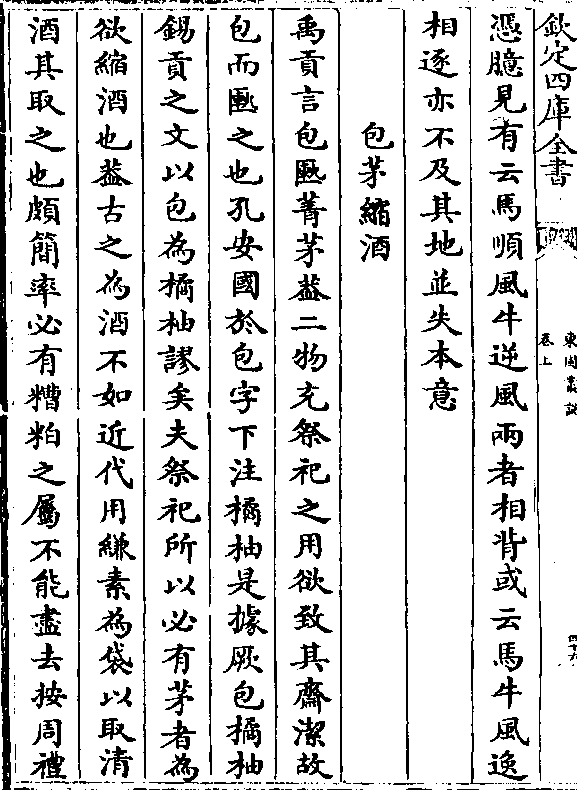 欽定四庫全書
東園叢說
卷上
憑臆見有云馬順風牛逆風兩者相背或云馬牛風逸
相逐亦不及其地並失本意
包茅縮酒
禹貢言包匭菁茅葢二物充祭祀之用欲致其齋潔故
包而匭之也孔安國於包字下注橘柚是據厥包橘柚
錫貢之文以包為橘柚謬矣夫祭祀所以必有茅者為
欲縮酒也葢古之為酒不如近代用縑素為袋以取清
酒其取之也頗簡率必有糟粕之屬不能盡去按周禮